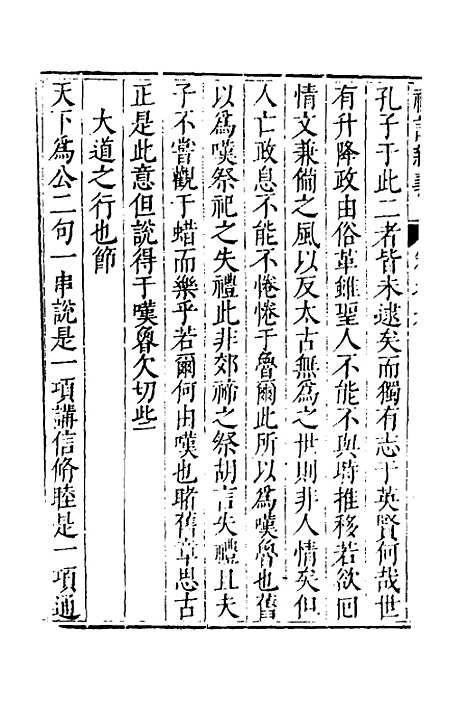 孔子于此二者皆未逮矣而獨有志于英賢何哉世
有升降政由俗革雖聖人不能不與時推移若欲囘
情文兼備之風以反太古無為之世則非人情矣但
人亡政息不能不惓惓于魯爾此所以為嘆魯也舊
以為嘆祭祀之失禮此非郊禘之祭胡言失禮且夫
子不嘗觀于蜡而樂乎若爾何由嘆也睹舊章思古
正是此意但說得于嘆魯欠切些
大道之行也節
天下為公二句一串說是一項講信脩睦是一項通